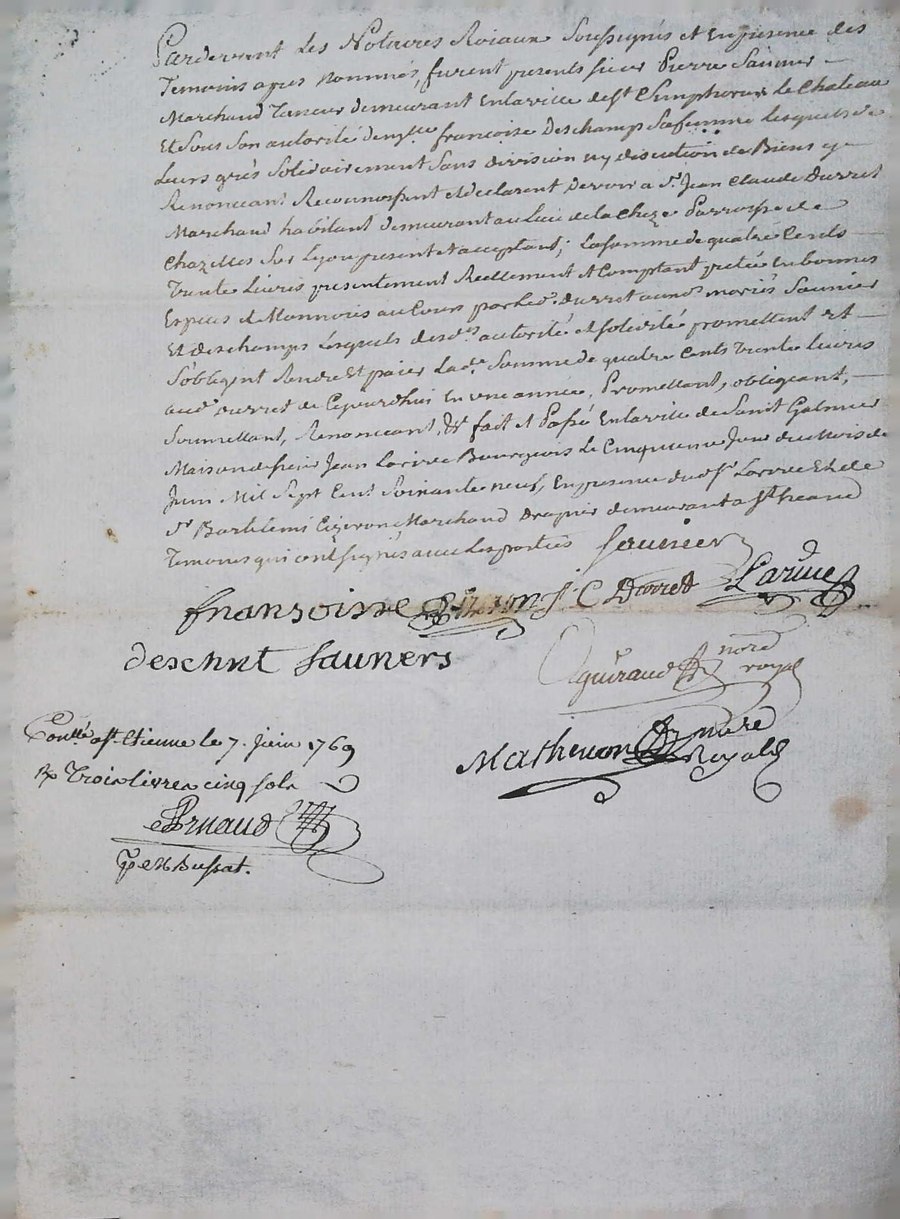 Pardevent Les Notaires Roiaux Soussignés et En presence des
Temoins apres nommés, furent presents sieur Pierre Saunier
Marchand Taneur demeurant En la ville de St Simphorien Le Chateau
Et Sous Son autorité françoise Deschamps Sa femme Lesquels de
Leurs grés Solidairement Sans division ny discution de Biens a quoy
Renonceant Reconnoissent et déclarent Devoir a Sr. Jean Claude Durret
Marchand habitant demeurant au Lieu de la Parroisse de
Chazelles Sur Lyon present et acceptant; La somme de quatre Cents
Trente Livres presentement Reellement et Comptant pretée En bonnes
Especes et Monnoies au Cours par Led. Durret auxd. mariés Saunier
Et deschamps Lesquels desd.s autorité et solidité promettent et
S'obligent Rendre Et paier Lad.e Somme de quatre Cents Trente Livres
aud. Durret de Cejourdhui En une année, Promettant, obligeant,
Soumettant, Renonceant, &c fait et Passé En la ville de Saint Galmier
Maison de sieur Jean Larive Bourgeois Le Cinquieme Jour du Mois de
Juin Mil Sept Cent Soixante neuf, En presence dud. Sr. Larive Et de
Sr. Bartelemi Cizeron Marchand Drapier demeurant a St heand
Temoins qui ont signés avec Les parties Saunier
fransoisse Cizeron J. C Durret Larive
deschnt Sauners
guiraud nore
royal
Con.llé a St. Etienne le 7. juin 1769
Rx Trois livres cinq sols
Mathevon nore
Royal
Arnaud